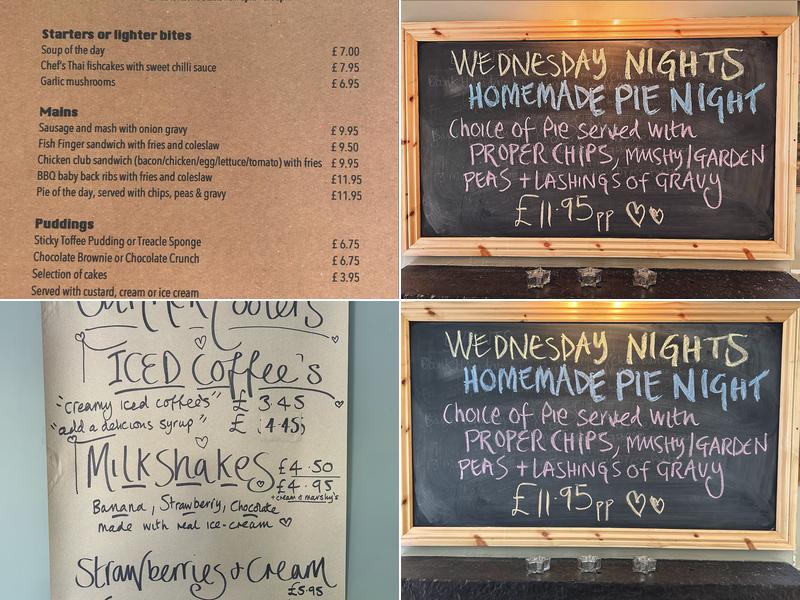 Starters or lighter bites
Soup of the day £ 7.00
Chef's Thai fishcakes with sweet chilli sauce £ 7.95
Garlic mushrooms £ 6.95
Mains
Sausage and mash with onion gravy £ 9.95
Fish Finger sandwich with fries and coleslaw £ 9.50
Chicken club sandwich (bacon/chicken/egg/lettuce/tomato) with fries £ 9.95
BBQ baby back ribs with fries and coleslaw £11.95
Pie of the day, served with chips, peas & gravy £11.95
Puddings
Sticky Toffee Pudding or Treacle Sponge £ 6.75
Chocolate Brownie or Chocolate Crunch £ 6.75
Selection of cakes £ 3.95
Served with custard, cream or ice cream
WEDNESDAY NIGHTS
HOMEMADE PIE NIGHT
Choice of Pie served with
PROPER CHIPS, MUSHY/GARDEN
PEAS + LASHINGS OF GRAVY
£11.95pp
ICED Coffee's
"creamy iced coffee's" £ 3.45
"add a delicious syrup" £ 4.45
MILKSHAKES £4.50
£4.95
+ cream & marshy's
Banana, Strawberry, Chocolate
made with real ice-cream
Strawberries & Cream
£5.95
WEDNESDAY NIGHTS
HOMEMADE PIE NIGHT
Choice of Pie served with
PROPER CHIPS, MUSHY/GARDEN
PEAS + LASHINGS OF GRAVY
£11.95pp